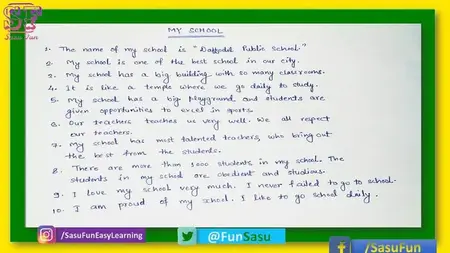 ST
Sasu Fun
MY SCHOOL
1. The name of my school is "Daffodil Public School."
2. My school is one of the best school in our city.
3. My school has a big building with so many classrooms.
4. It is like a temple where we go daily to study.
5. My school has a big playground and students are
given opportunities to excel in sports.
6. Our teachers teaches us very well. We all respect
our teachers.
7. My school has most talented teachers, who bring out
the best from the students.
8. There are more than 1000 students in my school. The
students in my school are obedient and studious.
9. I love my school very much. I never failed to go to school.
10. I am proud of my school. I like to go school daily.
/SasuFunEasyLearning
@FunSasu
/SasuFun